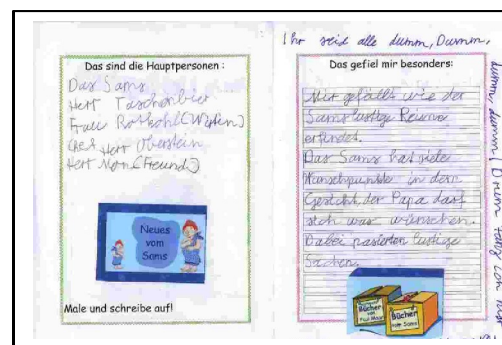 Das sind die Hauptpersonen :
Das Sams
Herr Taschenbier
Frau Rotkohl (Wirtin)
Herr Oberstein
Herr Mon (Freund)
Neues
vom
Sams
Male und schreibe auf!
Ihr seid alle dumm, Dumm,
dumm, dumm! Drum
Das gefiel mir besonders:
Mir gefällt wie der
Sams lustige Reime
erfindet.
Das Sams hat viele
Wunschpunkte in dem
Gesicht, der Papa darf
sich was wünschen.
Dabei passierten lustige
Sachen.
Bücher
von
Paul Maar
Bücher
vom Sams